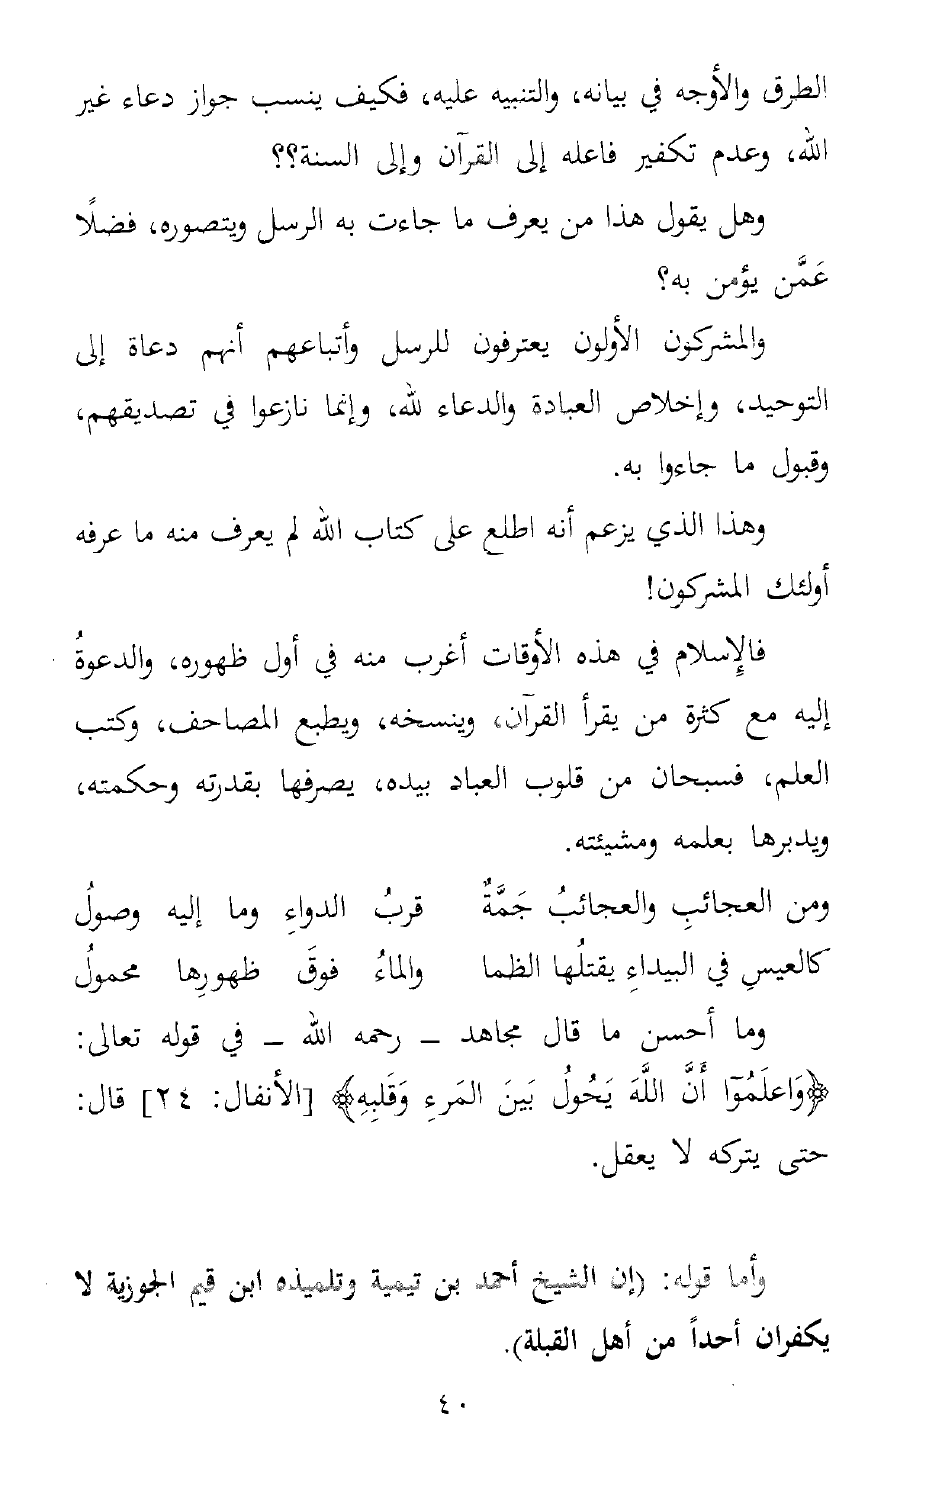 الطرق والأوجه في بيانه، والتنبيه عليه، فكيف ينسب جواز دعاء غير
الله، وعدم تكفير فاعله إلى القرآن وإلى السنة؟؟
وهل يقول هذا من يعرف ما جاءت به الرسل ويتصوره، فضلًا
عَمَّن يؤمن به؟
والمشركون الأولون يعترفون للرسل وأتباعهم أنهم دعاة إلى
التوحيد، وإخلاص العبادة والدعاء لله، وإنما نازعوا في تصديقهم،
وقبول ما جاءوا به.
وهذا الذي يزعم أنه اطلع على كتاب الله لم يعرف منه ما عرفه
أولئك المشركون!
فالإِسلام في هذه الأوقات أغرب منه في أول ظهوره، والدعوةُ
إليه مع كثرة من يقرأ القرآن، وينسخه، ويطبع المصاحف، وكتب
العلم، فسبحان من قلوب العباد بيده، يصرفها بقدرته وحكمته،
ويدبرها بعلمه ومشيئته.
ومن العجائبِ والعجائبُ جَمَّةٌ قربُ الدواءِ وما إليه وصولُ
كالعيسِ في البيداءِ يقتلُها الظما والماءُ فوقَ ظهورِها محمولُ
وما أحسن ما قال مجاهد ــ رحمه الله ــ في قوله تعالى:
﴿وَاعلَمُوٓا أَنَّ اللَّهَ يَحُولُ بَينَ المَرءِ وَقَلبِهِ﴾ [الأنفال: ٢٤] قال:
حتى يتركه لا يعقل.
وأما قوله: (إن الشيخ أحمد بن تيمية وتلميذه ابن قيم الجوزية لا
يكفران أحداً من أهل القبلة).
٤٠